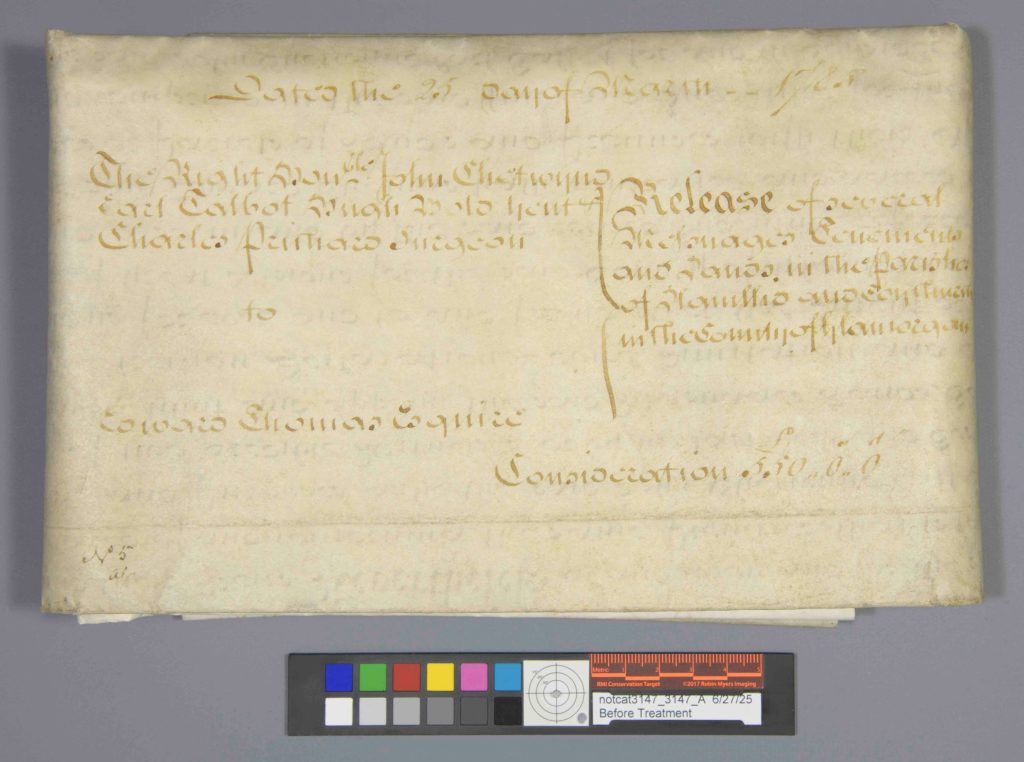 Dated the 25 Day of March -- 1788
The Right Hon.ble John Chetwynd
Earl Talbot Hugh Bold Gent &
Charles Prichard Surgeon
to
Edward Thomas Esquire
Release of several
Messuages Tenements
and Lands, in the Parishes
of
in the County of Glamorgan
Consideration £550..0..0
No 5
Metric 1 2 3 4 5
RMI Conservation Target ©2017 Robin Myers Imaging
notcat3147_3147_A 6/27/25
Before Treatment